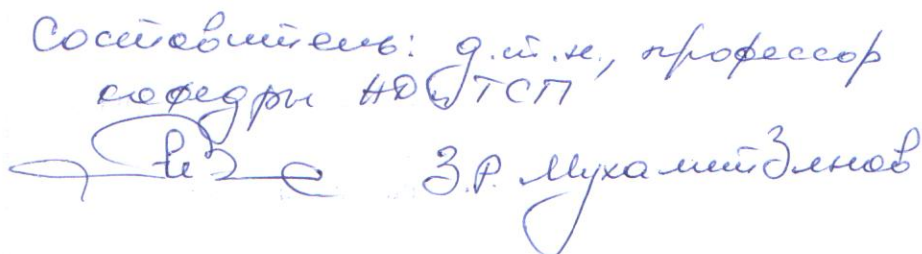 Составитель: д.т.н., профессор
кафедры АД и ТСП
З.Р. Мухаметзянов